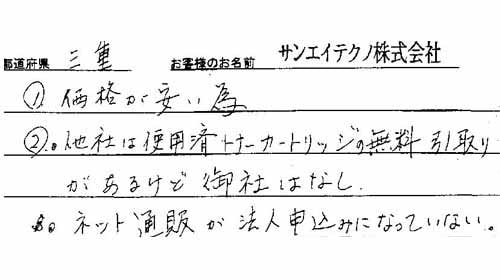 都道府県 三重 お客様のお名前 サンエイテクノ株式会社
① 価格が安い為
②。他社は使用済トナーカートリッジの無料引取り
があるけど御社はなし.
。ネット通販が法人申込みになっていない。